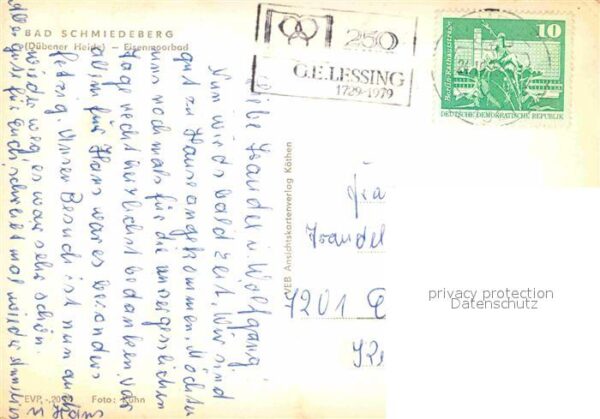 BAD SCHMIEDEBERG
(Dübener Heide) — Eisenmoorbad
250
G.E.LESSING
1729-1979
10
Berlin, Rathausstraße
DEUTSCHE DEMOKRATISCHE REPUBLIK
Liebe Traudel u. Wolfgang.
Nun wirds bald Zeit. Wir sind
gut zu Hause angekommen. Möchten
uns nochmals für die unvergesslichen
Tage recht herzlichst bedanken, vor
allem für Hans war es besonders
Unser Besuch ist nun auch
wieder weg, es war sehr schön.
Alles gute für Euch, schreibt mal wieder
u Hans
VEB Ansichtskartenverlag Köthen
Traudel
7201
privacy protection
Datenschutz
EVP -,20 Foto: Kühn